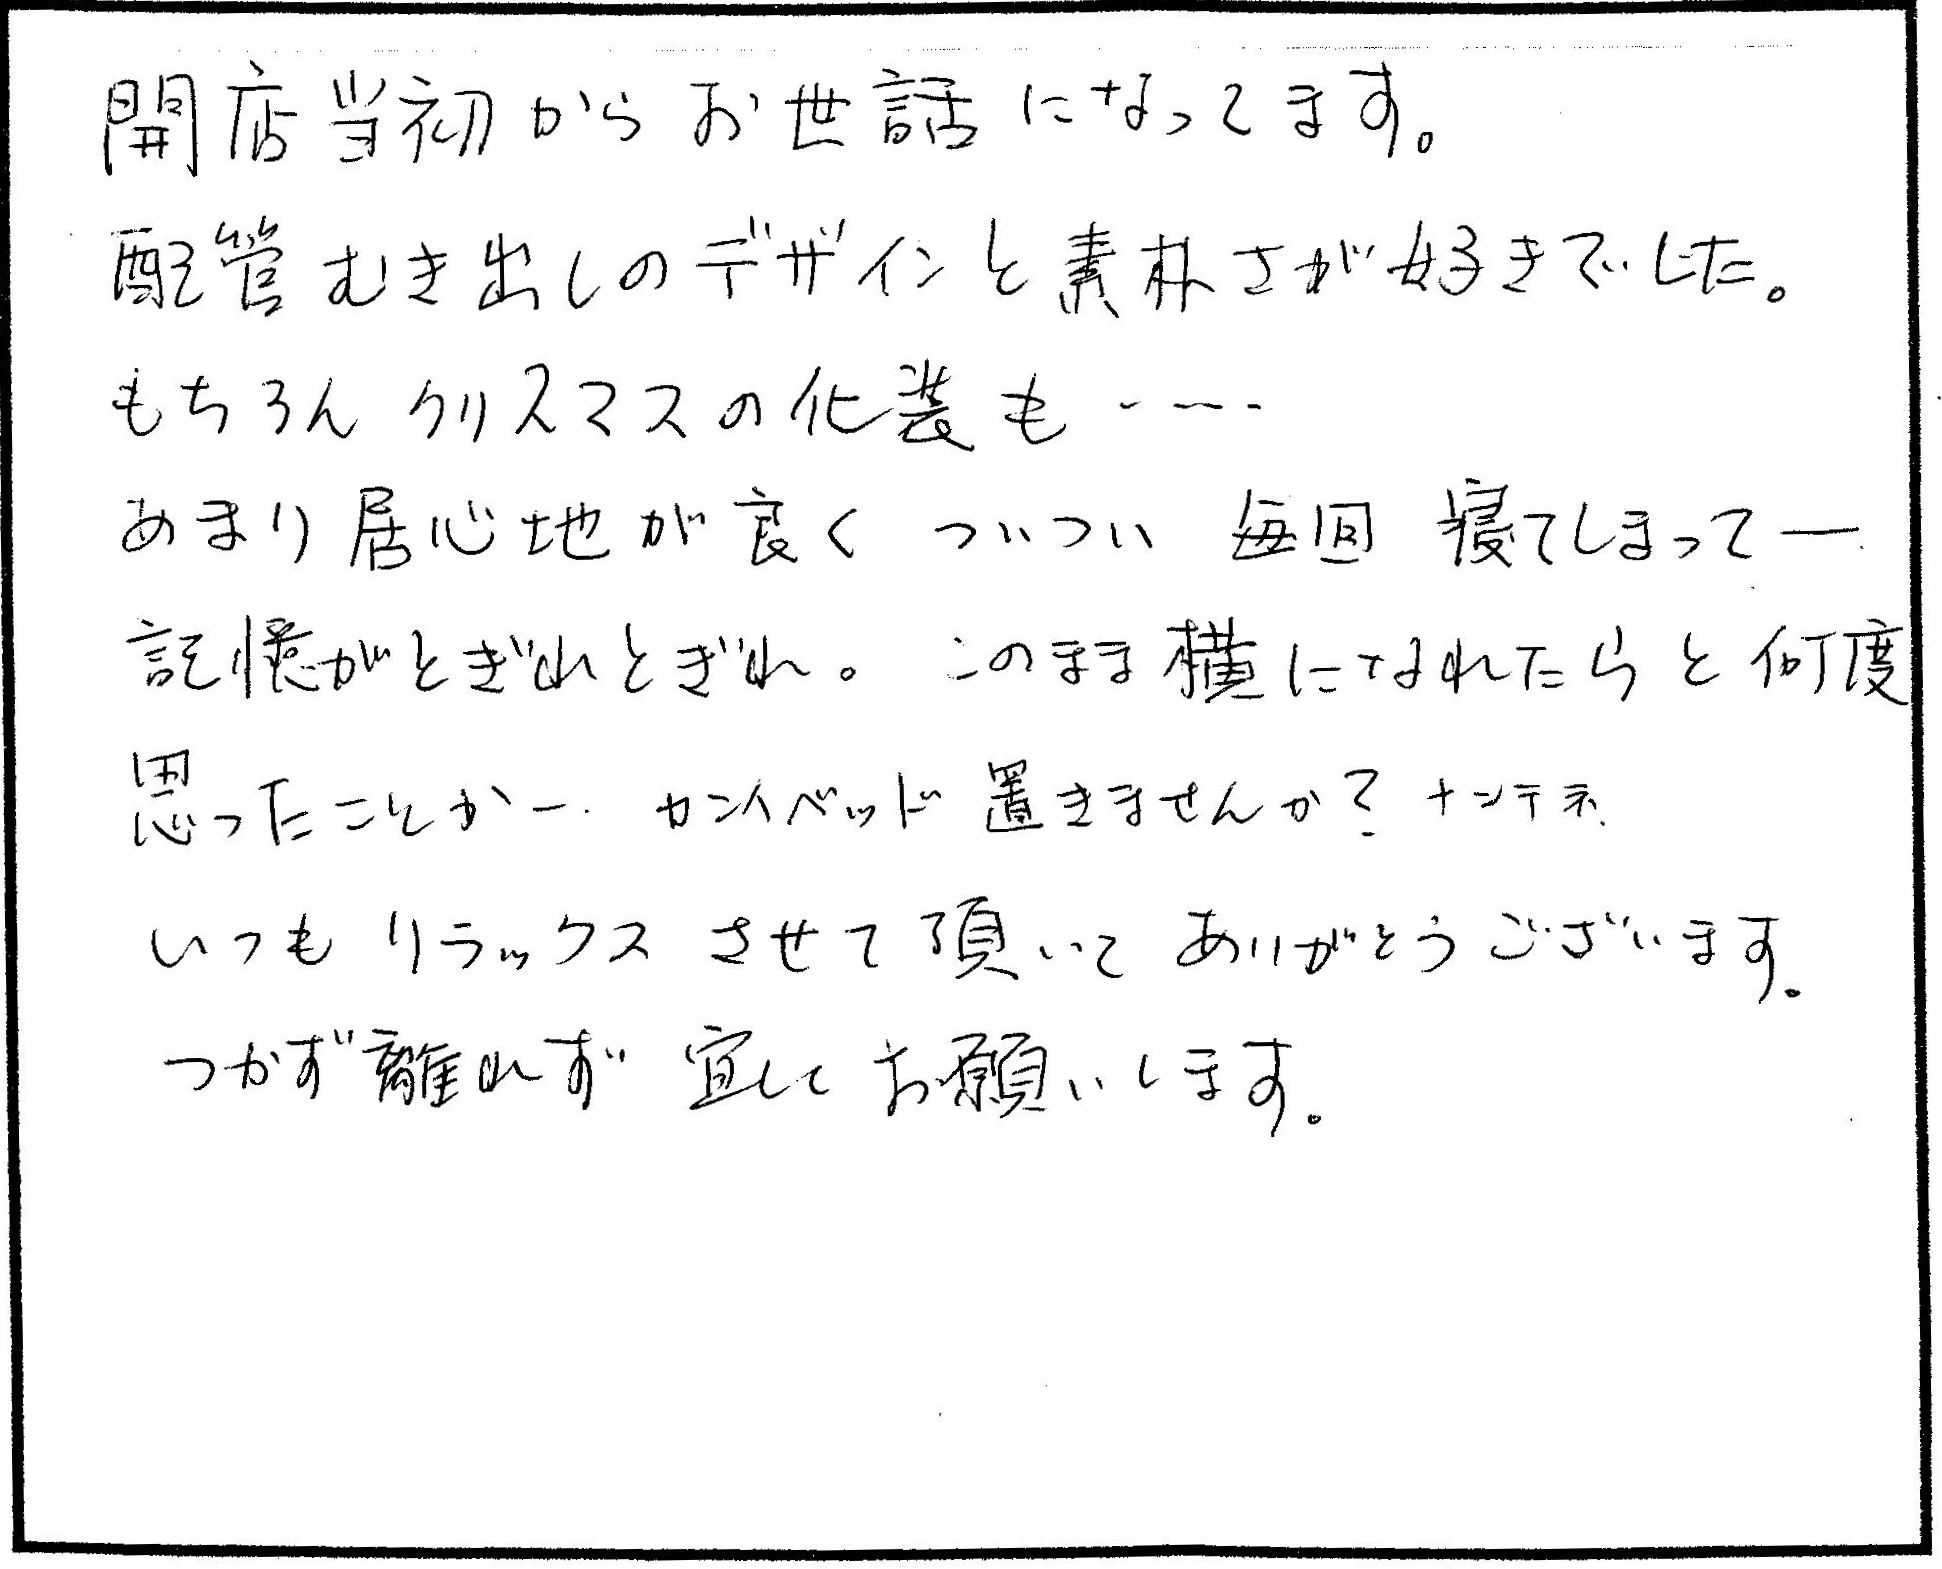 開店当初からお世話になってます。
配管むき出しのデザインと素朴さが好きでした。
もちろんクリスマスの化装も・・・・
あまり居心地が良く ついつい 毎回 寝てしまって―
記憶がとぎれとぎれ。 このまま横になれたらと何度
思ったことか―. カンイベッド置きませんか? ナンテネ.
いつも リラックス させて頂いて ありがとうございます。
つかず離れず 宜しくお願いします。